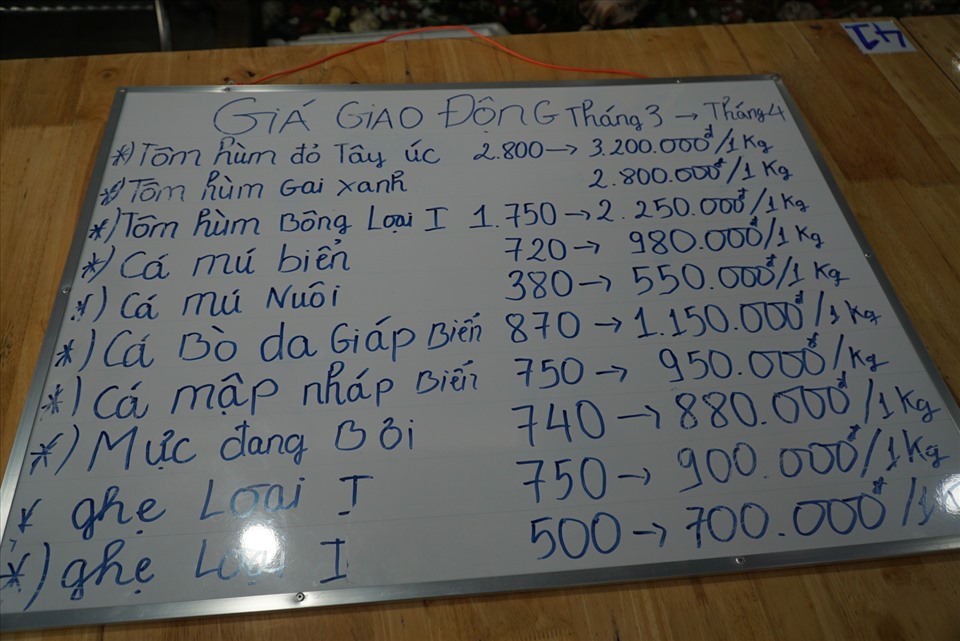 GIÁ GIAO ĐỘNG Tháng 3 → Tháng 4
*) Tôm hùm đỏ Tây úc 2.800 → 3.200.000đ/1 Kg
*) Tôm hùm Gai xanh 2.800.000đ/1 Kg
*) Tôm hùm Bông Loại I 1.750 → 2.250.000đ/1Kg
*) Cá mú biển 720 → 980.000đ/1 Kg
*) Cá mú Nuôi 380 → 550.000đ/1 Kg
*) Cá Bò da Giáp Biển 870 → 1.150.000đ/1 Kg
*) Cá mập nháp Biển 750 → 950.000đ/Kg
*) Mực đang Bơi 740 → 880.000đ/1 Kg
* ghẹ Loại I 750 → 900.000đ/1 Kg
*) ghẹ Loại I 500 → 700.000đ/1K
41